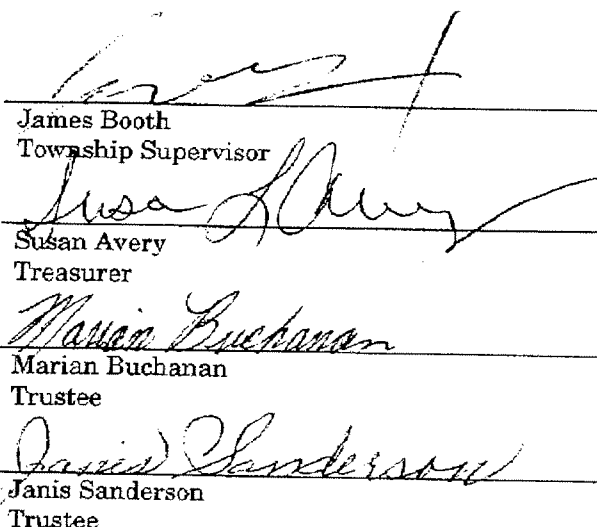 James Booth
Township Supervisor
Susan L Avery
Susan Avery
Treasurer
Marian Buchanan
Marian Buchanan
Trustee
Janis Sanderson
Janis Sanderson
Trustee